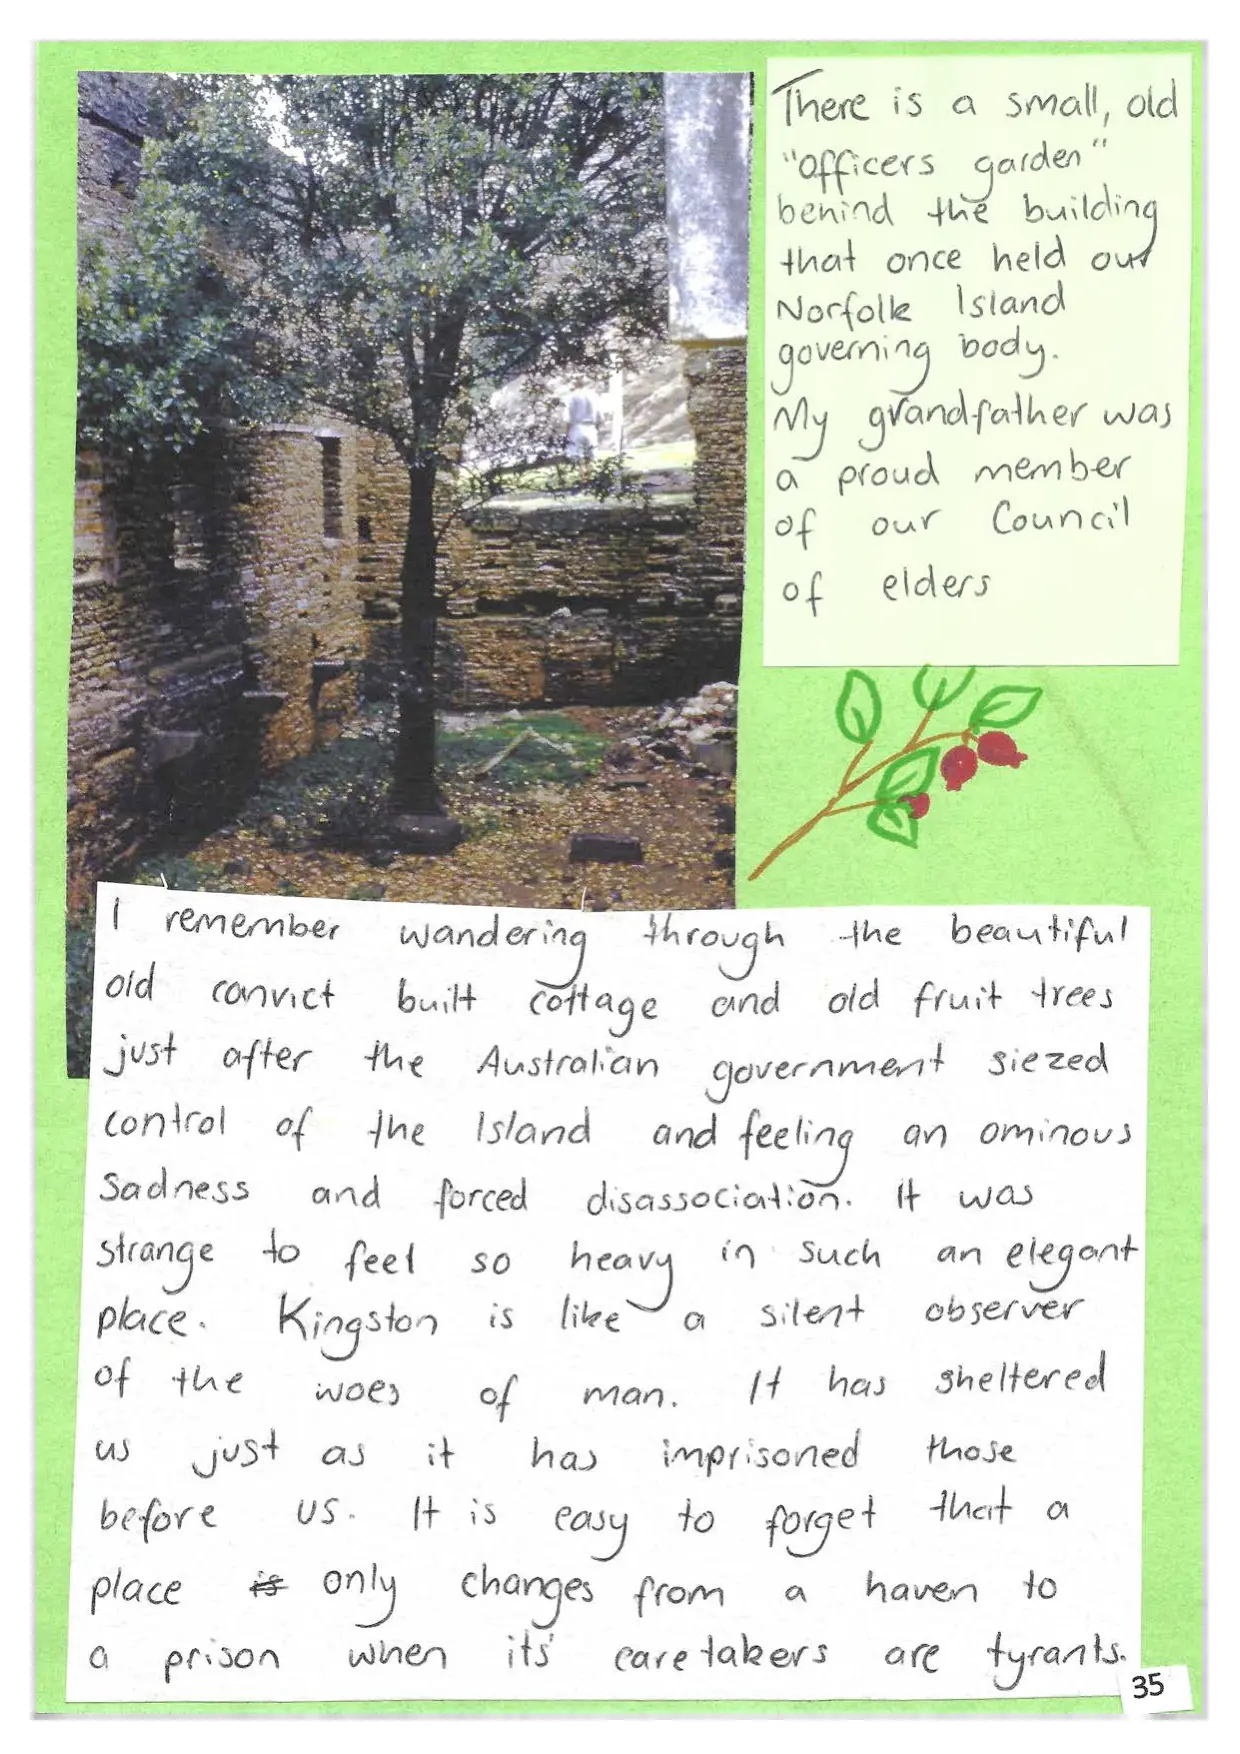 There is a small, old
"officers garden"
behind the building
that once held our
Norfolk Island
governing body.
My grandfather was
a proud member
of our Council
of elders
I remember wandering through the beautiful
old convict built cottage and old fruit trees
just after the Australian government siezed
control of the Island and feeling an ominous
sadness and forced disassociation. It was
strange to feel so heavy in such an elegant
place. Kingston is like a silent observer
of the woes of man. It has sheltered
us just as it has imprisoned those
before us. It is easy to forget that a
place is only changes from a haven to
a prison when its' caretakers are tyrants.
35